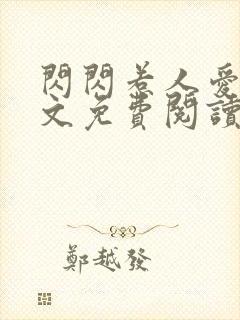 閃閃若人愛
文免費閱讀
鄭越發